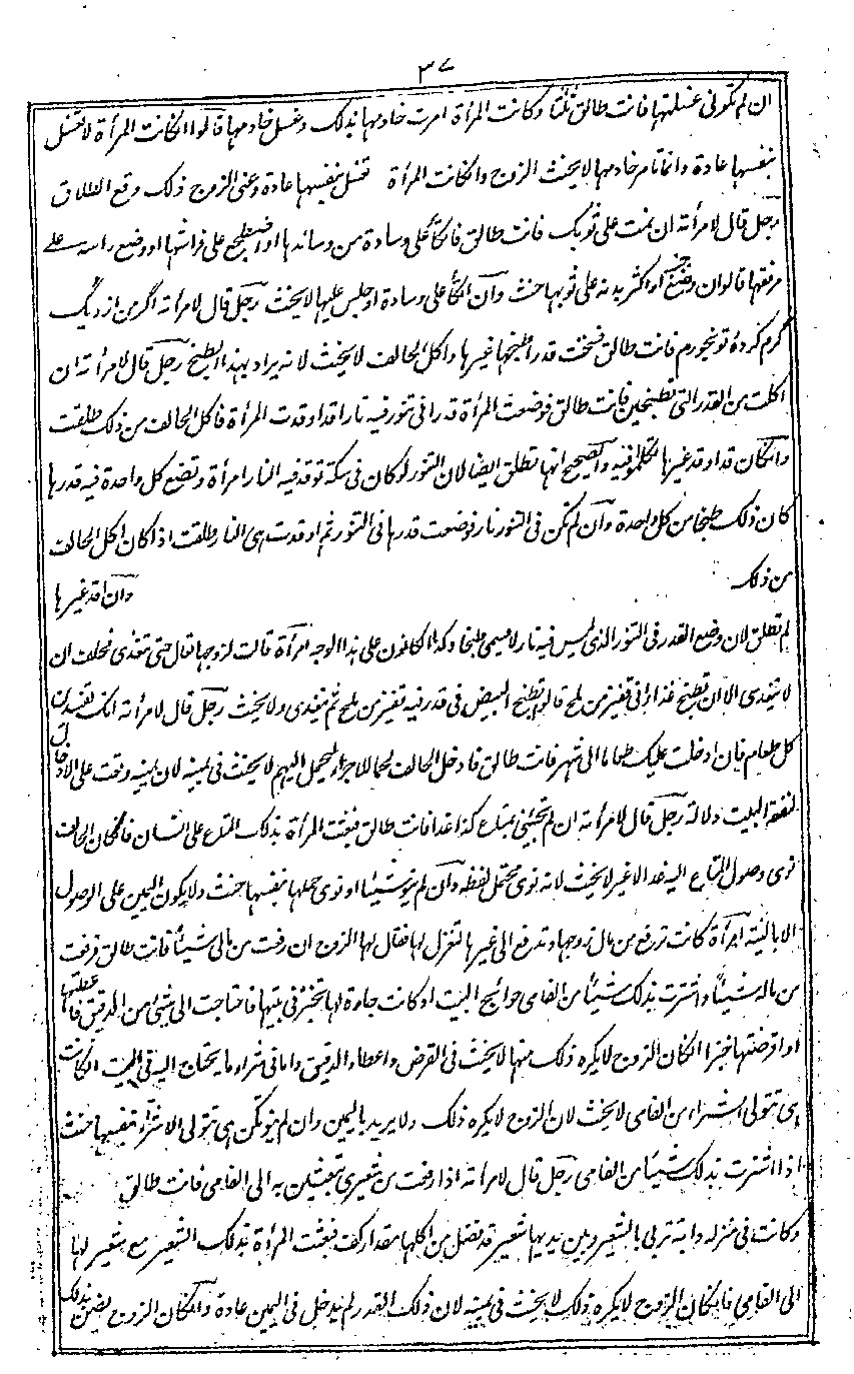 ٣٧
ان لم تكونى غسلتها فانت طالق ثلثا وكانت المرأة امرت خادمها بذلك وغسل خادمها قالوا ان كانت المرأة لا تغسل
بنفسها عادة وانما تامر خادمها لا يحنث الزوج وان كانت المرأة تغسل بنفسها عادة وعنى الزوج ذلك وقع الطلاق
رجل قال لامرأته ان نمت على ثوبك فانت طالق فاتكأ على وسادة من وسائدها او اضطجع على فراشها او وضع راسه على
مرفقها قالوا ان وضع جنبه او اكثر بدنه على ثوبها حنث وان اتكأ على وسادة او جلس عليها لا يحنث رجل قال لامرأته اگر من از ديگ
گرم كردهٔ تو بخورم فانت طالق فسخنت قدرا طبخها غيرها واكل الحالف لا يحنث لانه يراد بهذا الطبخ رجل قال لامرأته ان
اكلت من القدر التى تطبخين فانت طالق فوضعت المرأة قدرا فى تنور فيه نار اقد اوقدت المرأة فاكل الحالف من ذلك طلقت
وان كان قد اوقد غيرها تكلموا فيه والصحيح انها تطلق ايضا لان التنور لو كان فى سكة توقد فيه النار امرأة وتضع كل واحدة فيه قدرها
كان ذلك طبخا من كل واحدة وان لم تكن فى التنور نار فوضعت قدرها فى التنور ثم اوقدت هى النار طلقت اذا كان اكل الحالف
من ذلك وان اوقد غيرها
لم تطلق لان وضع القدر فى التنور الذى ليس فيه نار لا يسمى طبخا وكذا الكانون على هذا الوجه امرأة قالت لزوجها تعال حتى تتغدى فحلف ان
لا يتغدى الا ان تطبخ غذاء فى قفيز من ملح قالوا تطبخ البيض فى قدر فيه قفيز من ملح ثم يتغدى ولا يحنث رجل قال لامرأته انك تفسدين
كل طعام فان ادخلت عليك طعاما الى شهر فانت طالق فادخل الحالف لحما للاجراء ليحمل اليهم لا يحنث فى يمينه لان يمينه وقعت على الادخال
لنفقة البيت دلالة رجل قال لامرأته ان لم تجيئينى بمتاع كذا غدا فانت طالق فبعثت المرأة بذلك المتاع على انسان فان كان الحالف
نوى وصول المتاع اليه غدا لا غير لا يحنث لانه نوى محتمل لفظه وان لم ينو شيئا او نوى حملها بنفسها حنث ولا يكون اليمين على الوصول
الا بالنية امرأة كانت ترفع من مال زوجها وتدفع الى غيرها لتغزل لها فقال لها الزوج ان رفعت من مالى شيئا فانت طالق فرفعت
من ماله شيئا واشترت بذلك شيئا من الفامى حوائج البيت او كانت جارة لها تخبز فى بيتها فاحتاجت الى شئ من الدقيق فاعطتها
او اقرضتها خبزا ان كان الزوج لا يكره ذلك منها لا يحنث فى القرض واعطاء الدقيق واما فى شراء ما يحتاج اليه فى البيت ان كانت
هى تتولى الشراء من الفامى لا يحنث لان الزوج لا يكره ذلك ولا يريد باليمين وان لم تكن هى تتولى الاشتراء بنفسها حنث
اذا اشترت بذلك شيئا من الفامى رجل قال لامرأته اذا رفعت من شعيرى تبعثين به الى الفامى فانت طالق
وكانت فى منزله دابة تربى بالشعير وبين يديها شعير قد تفضل من اكلها مقدار كف فبعثت المرأة بذلك الشعير مع شعير لها
الى الفامى فان كان الزوج لا يكره ذلك لا يحنث فى يمينه لان ذلك القدر لم يدخل فى اليمين عادة وان كان الزوج يضن بذلك